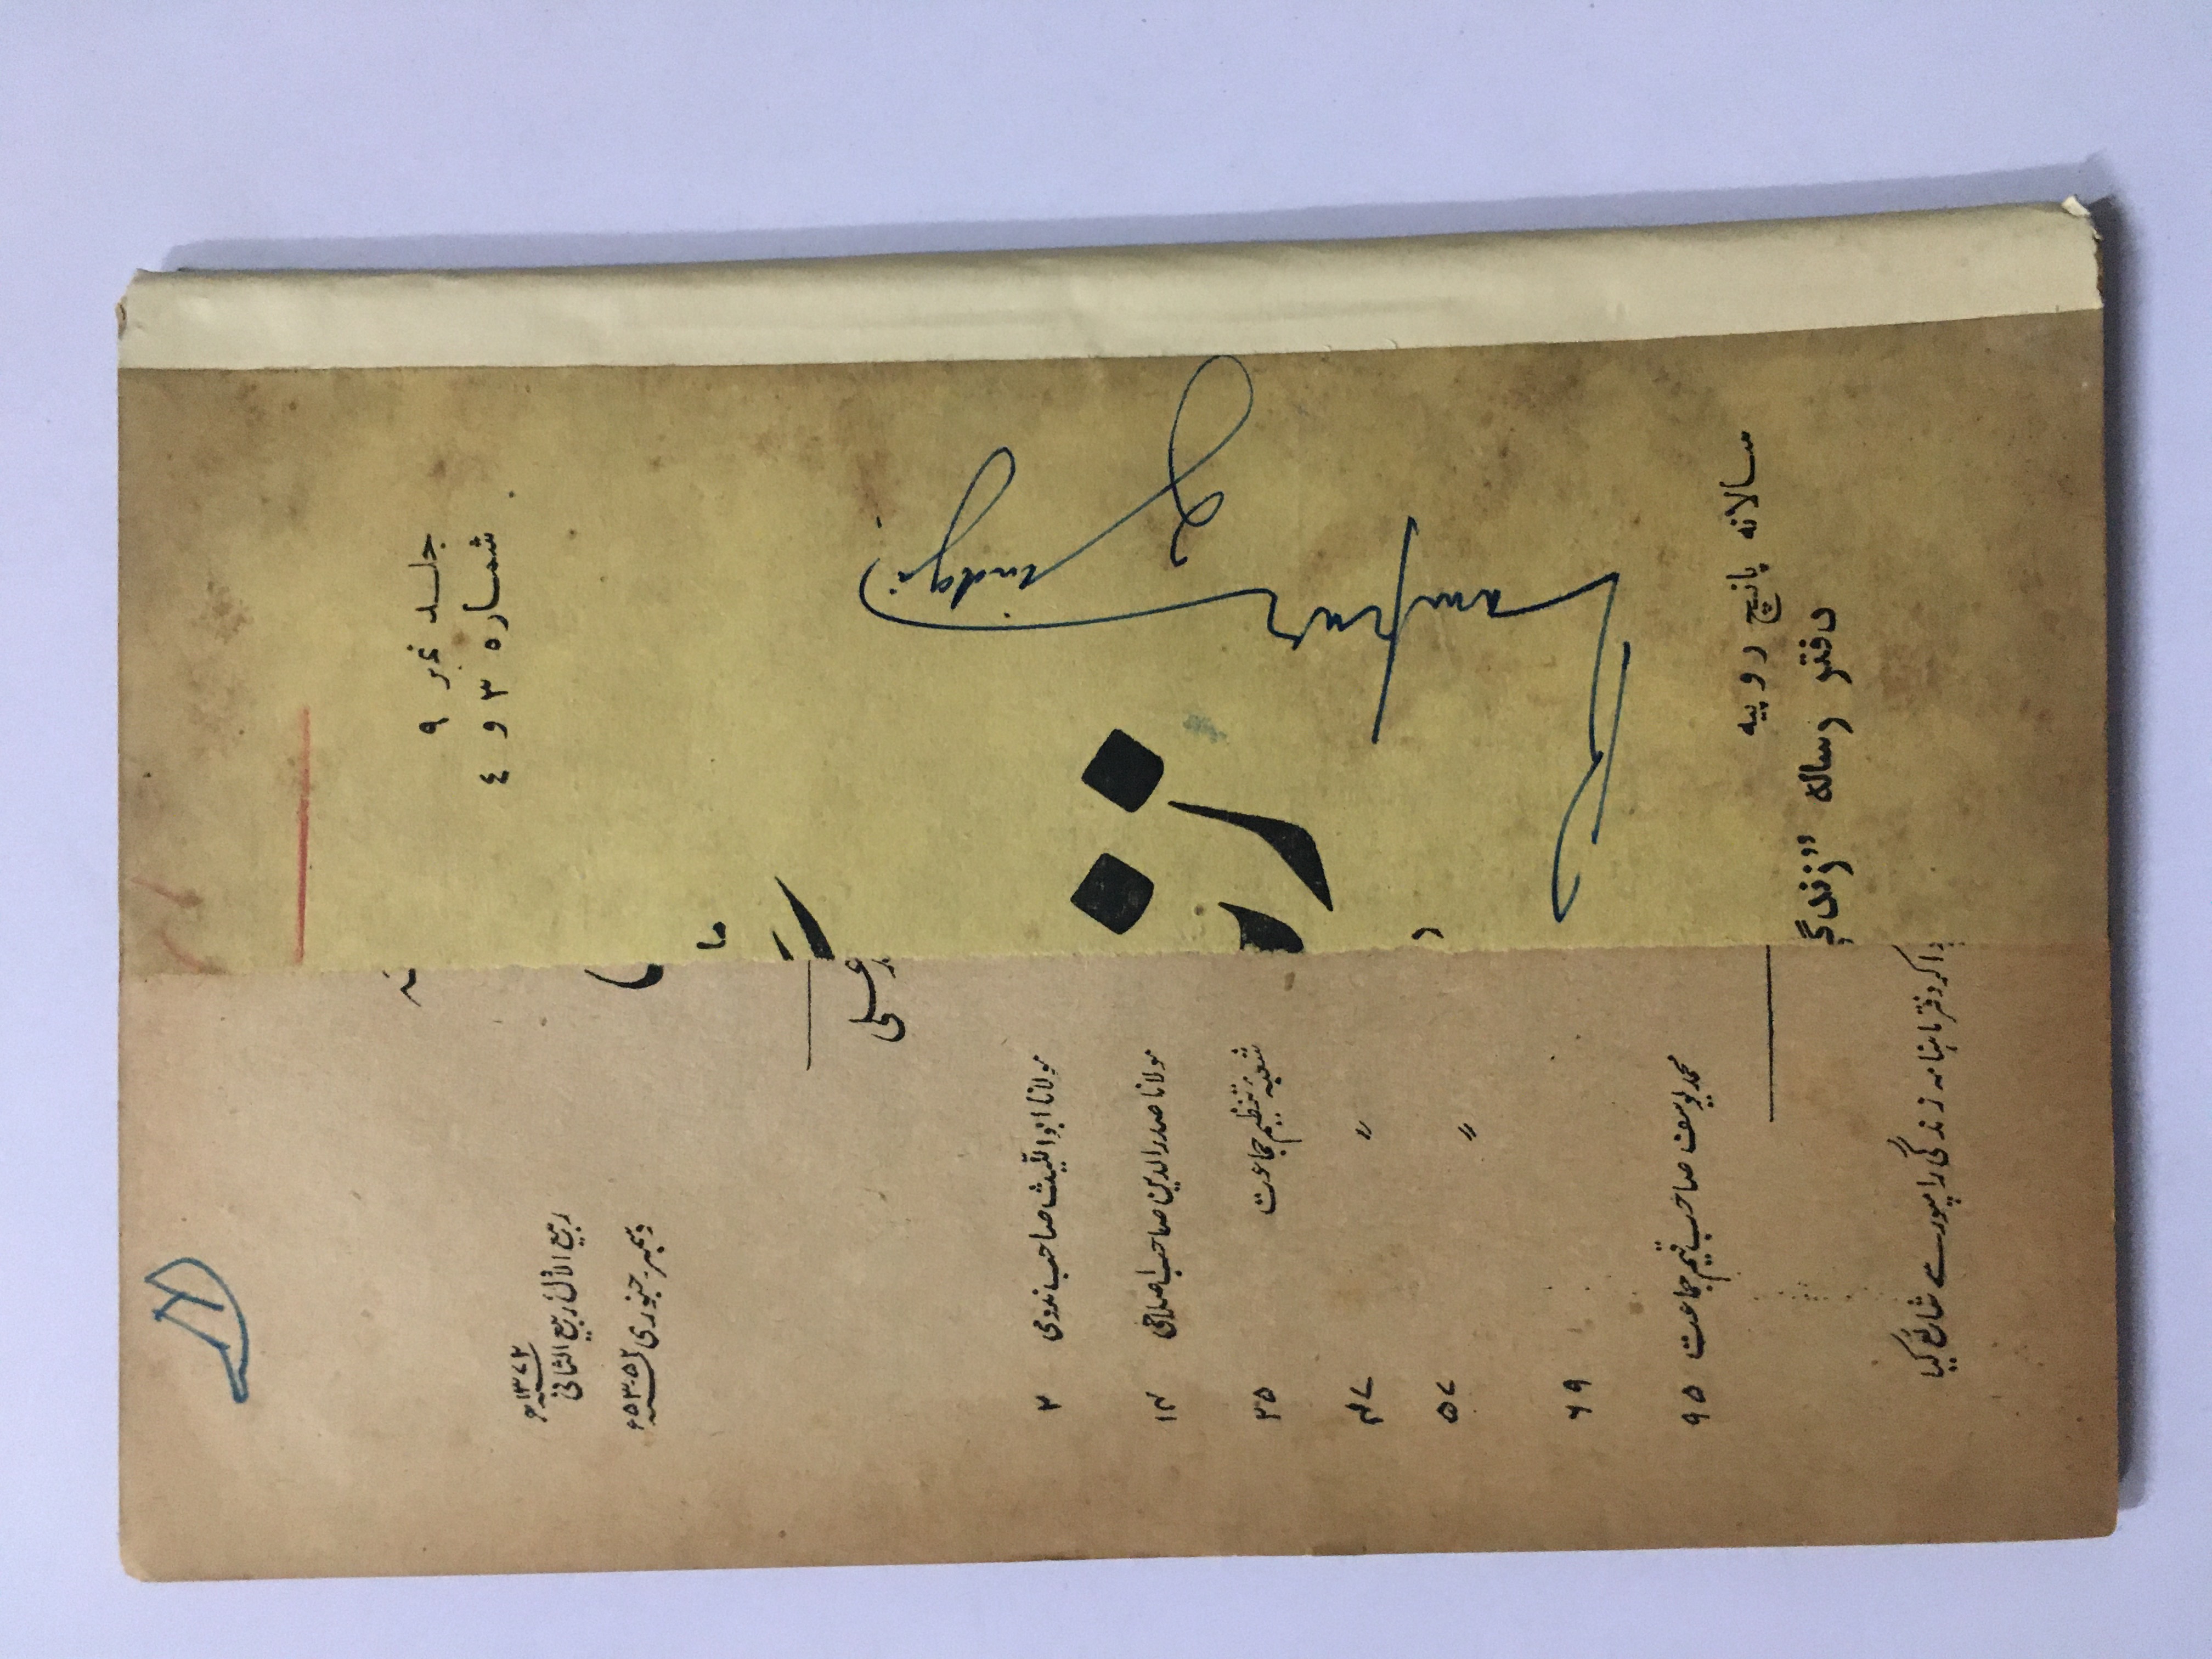 جلد نمبر ۹
شمارہ ۳ و ٤
ما
Zindgi
Rampur
سالانہ پانچ روپیہ
دفتر رسالہ "زندگی
ربیع الاول ربیع الثانی ۱۳۷۲ھ
دسمبر، جنوری ۵۲-۵۳ء
مولانا ابو اللیث صاحب ندوی ۲
مولانا صدر الدین صاحب اصلاحی ۱۴
شعبہ تنظیم جماعت ۲۵
" ۴۷
" ۵۷
۶۹
محمد یوسف صاحب قیم جماعت ۹۵
کر دفتر ماہنامہ زندگی رامپور سے شائع کیا